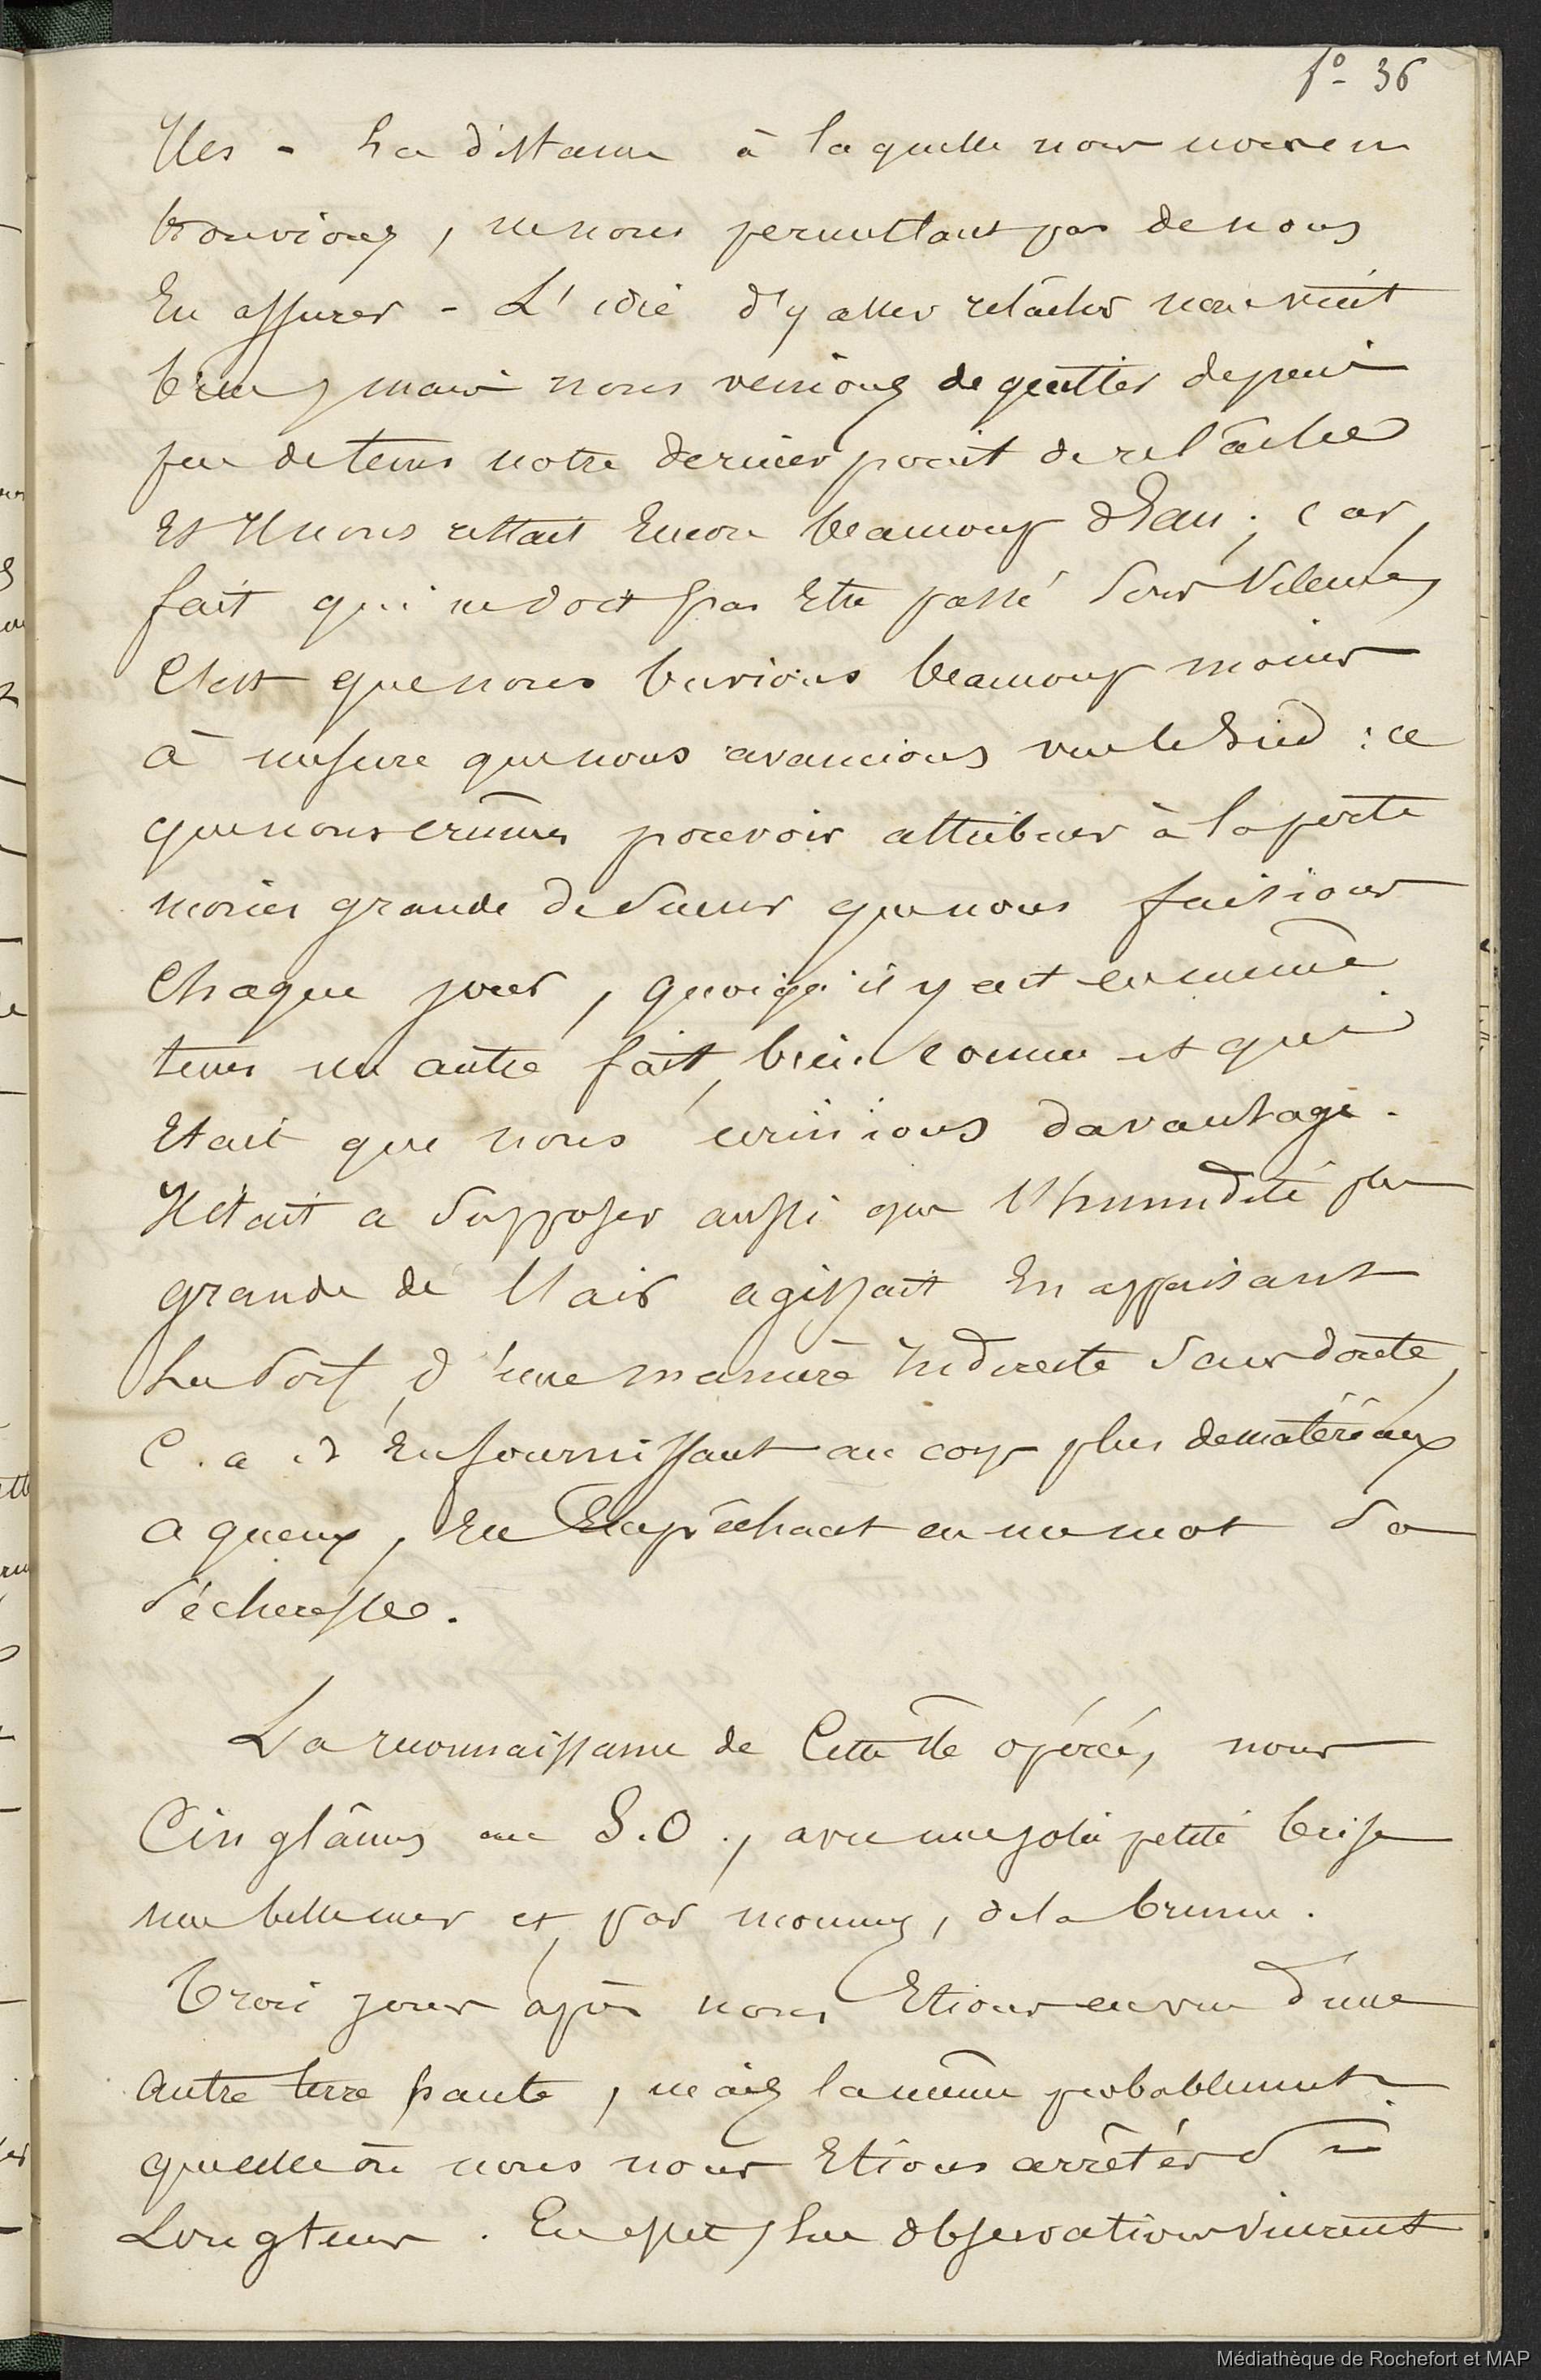 fo- 36
Iles - La distance à laquelle nous nous en
trouvions, ne nous permettant pas de nous
En assurer - L'idée d'y aller relâcher nous vint
bien, mais nous venions de quitter depuis
peu de tems notre dernier point de relâche
Et Il nous restait Encore beaucoup d'Eau ; car,
fait qui ne doit pas Etre passé sous silence,
C'est que nous buvions beaucoup moins
à mesure que nous avancions vers le Sud : ce
que nous crûmes pouvoir attribuer à la perte
moins grande de sueur que nous faisions
Chaque jour, quoiqu'il y ait en même
tems un autre fait, bien connu et qui
Etait que nous urinions davantage.
Il était a supposer aussi que l'humidité plus
grande de l'air agissait En appaisant
La soif, d'une manière Indirecte sans doute,
C. a. d En fournissant au corps plus de matériaux
aqueux, En Empêchant en un mot sa
sécheresse.
La reconnaissance de Cette Ile opérée, nous
Cinglâmes au S.O., avec une jolie petite brise
une belle mer et, par momens, de la brume.
Trois jours après nous Etions en vue d'une
autre terre haute, mais la même probablement
que celle où nous nous Etions arrêtés si
Longtems. En effet, les observations vinrent
Médiathèque de Rochefort et MAP